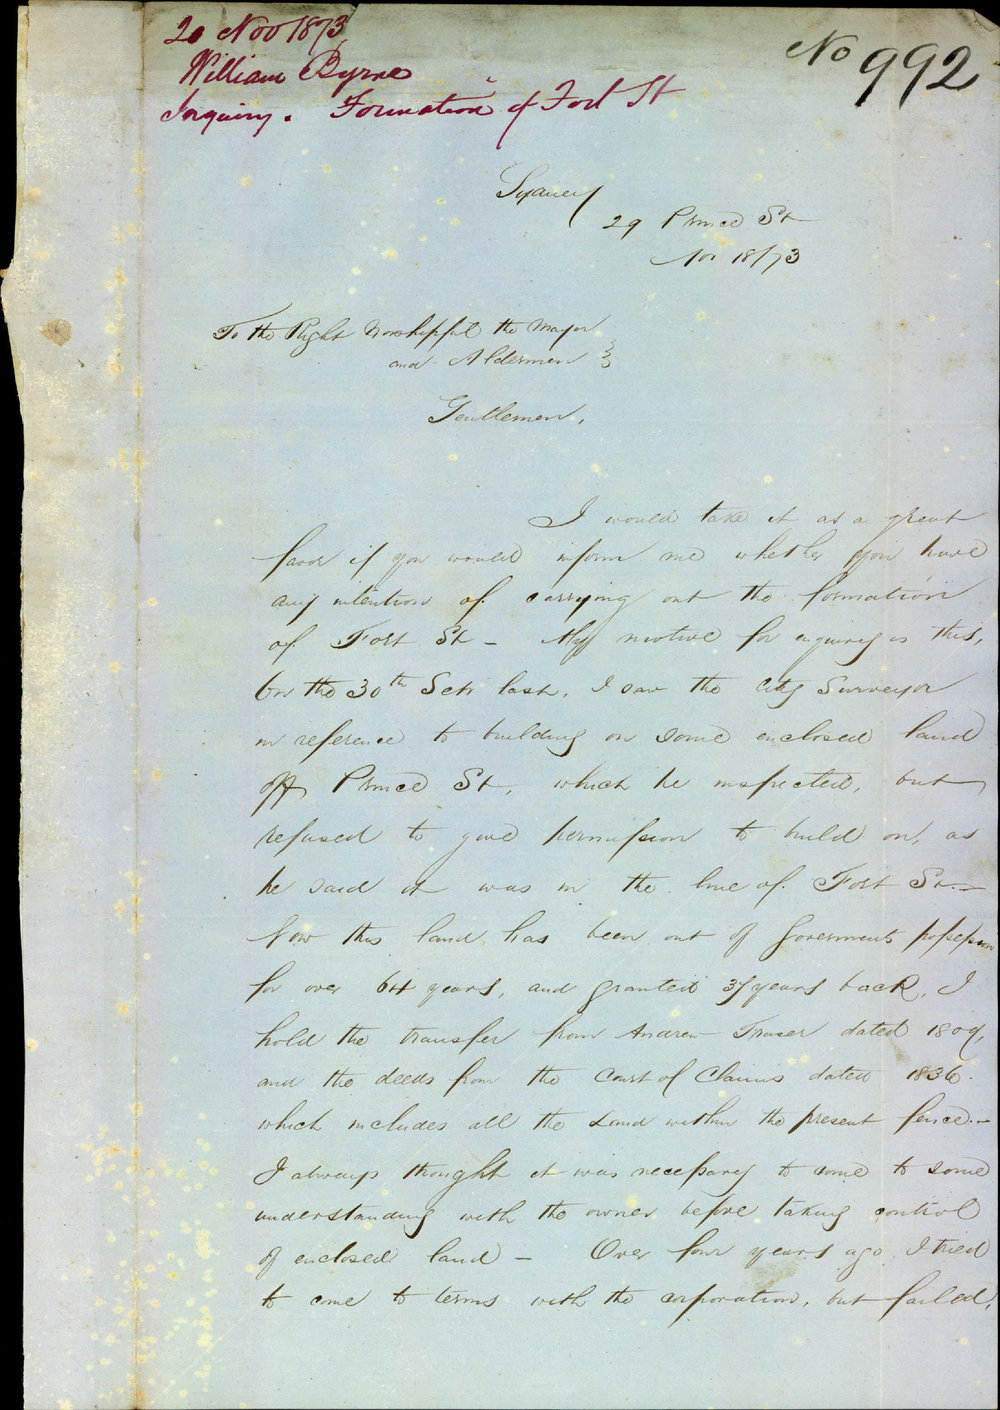 20 Nov 1873
William Byrne
Inquiry. Formation of Fort St
No 992
Sydney
29 Prince St
Nov 18/73
To the Right Worshipful the Mayor
and Aldermen
Gentlemen,
I would take it as a great
favor if you would inform me whether you have
any intention of carrying out the formation
of Fort St - My motive for enquiring is this,
On the 30th Sept last, I saw the City Surveyor
in reference to building on some enclosed land
off Prince St, which he inspected, but
refused to give permission to build on, as
he said it was in the line of Fort St. -
Now this land has been out of Goverments possession
for over 64 years, and granted 37 years back, I
hold the transfer from Andrew Fraser dated 1809,
and the deeds from the Court of Claims dated 1836.
which includes all the Land within the present fence. -
I always thought it was necessary to come to some
understanding with the owner before taking control
of enclosed land - Over four years ago I tried
to come to terms with the corporation, but failed,